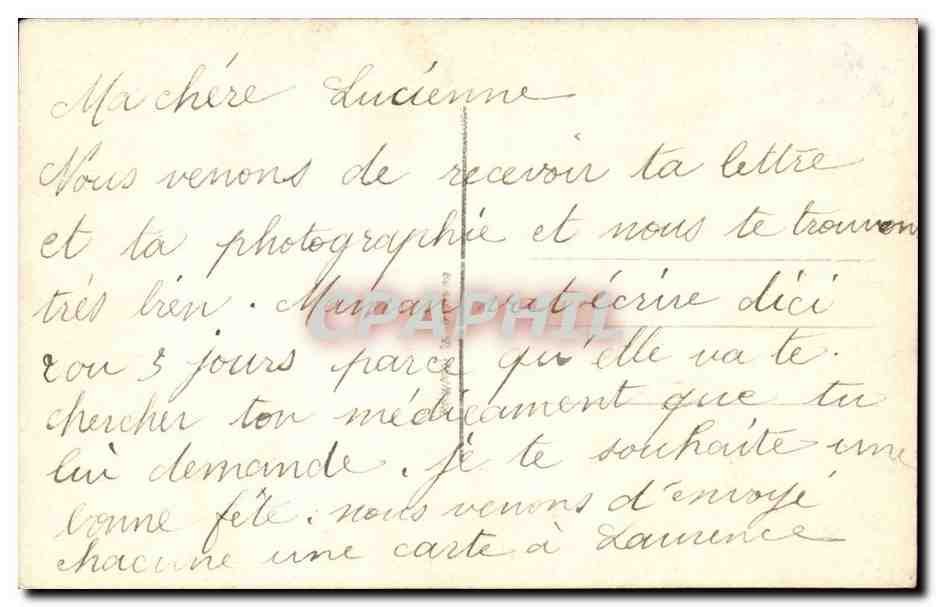 Ma chére Lucienne
Nous venons de recevoir ta lettre
et ta photographie et nous te trouvon
trés bien. Maman va t'écrire dici
2 ou 3 jours parce qu'elle va te
chercher ton médicament que tu
lui demande. je te souhaite une
bonne fête. nous venons d'envoyé
chacune une carte à Laurence
CPAPHIL